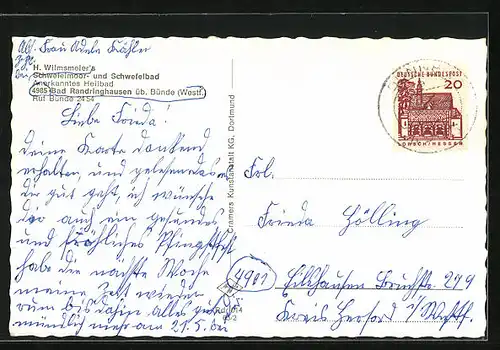 Abs. Frau Adele Kröhler
z. Zt. bei
H. Wilmsmeier's
Schwefelmoor- und Schwefelbad
Anerkanntes Heilbad
4985 Bad Randringhausen üb. Bünde (Westf.)
Ruf Bünde 24 54
Liebe Frieda!
Deine Karte dankend
erhalten, und gelesen daß es
dir gut geht, ich wünsche
dir auch ein gesundes
und fröhliches Pfingstfest
habe die nächste Woche
meine Zeit wieder
rum bis dahin alles gute
mündlich mehr am 21.5. bei
Cramers Kunstanstalt KG, Dortmund
DEUTSCHE BUNDESPOST
20
LORSCH/HESSEN
Frl.
Frieda Hölling
4901 Eilshausen Bruchstr. 279
Kreis Herford i/Westf.